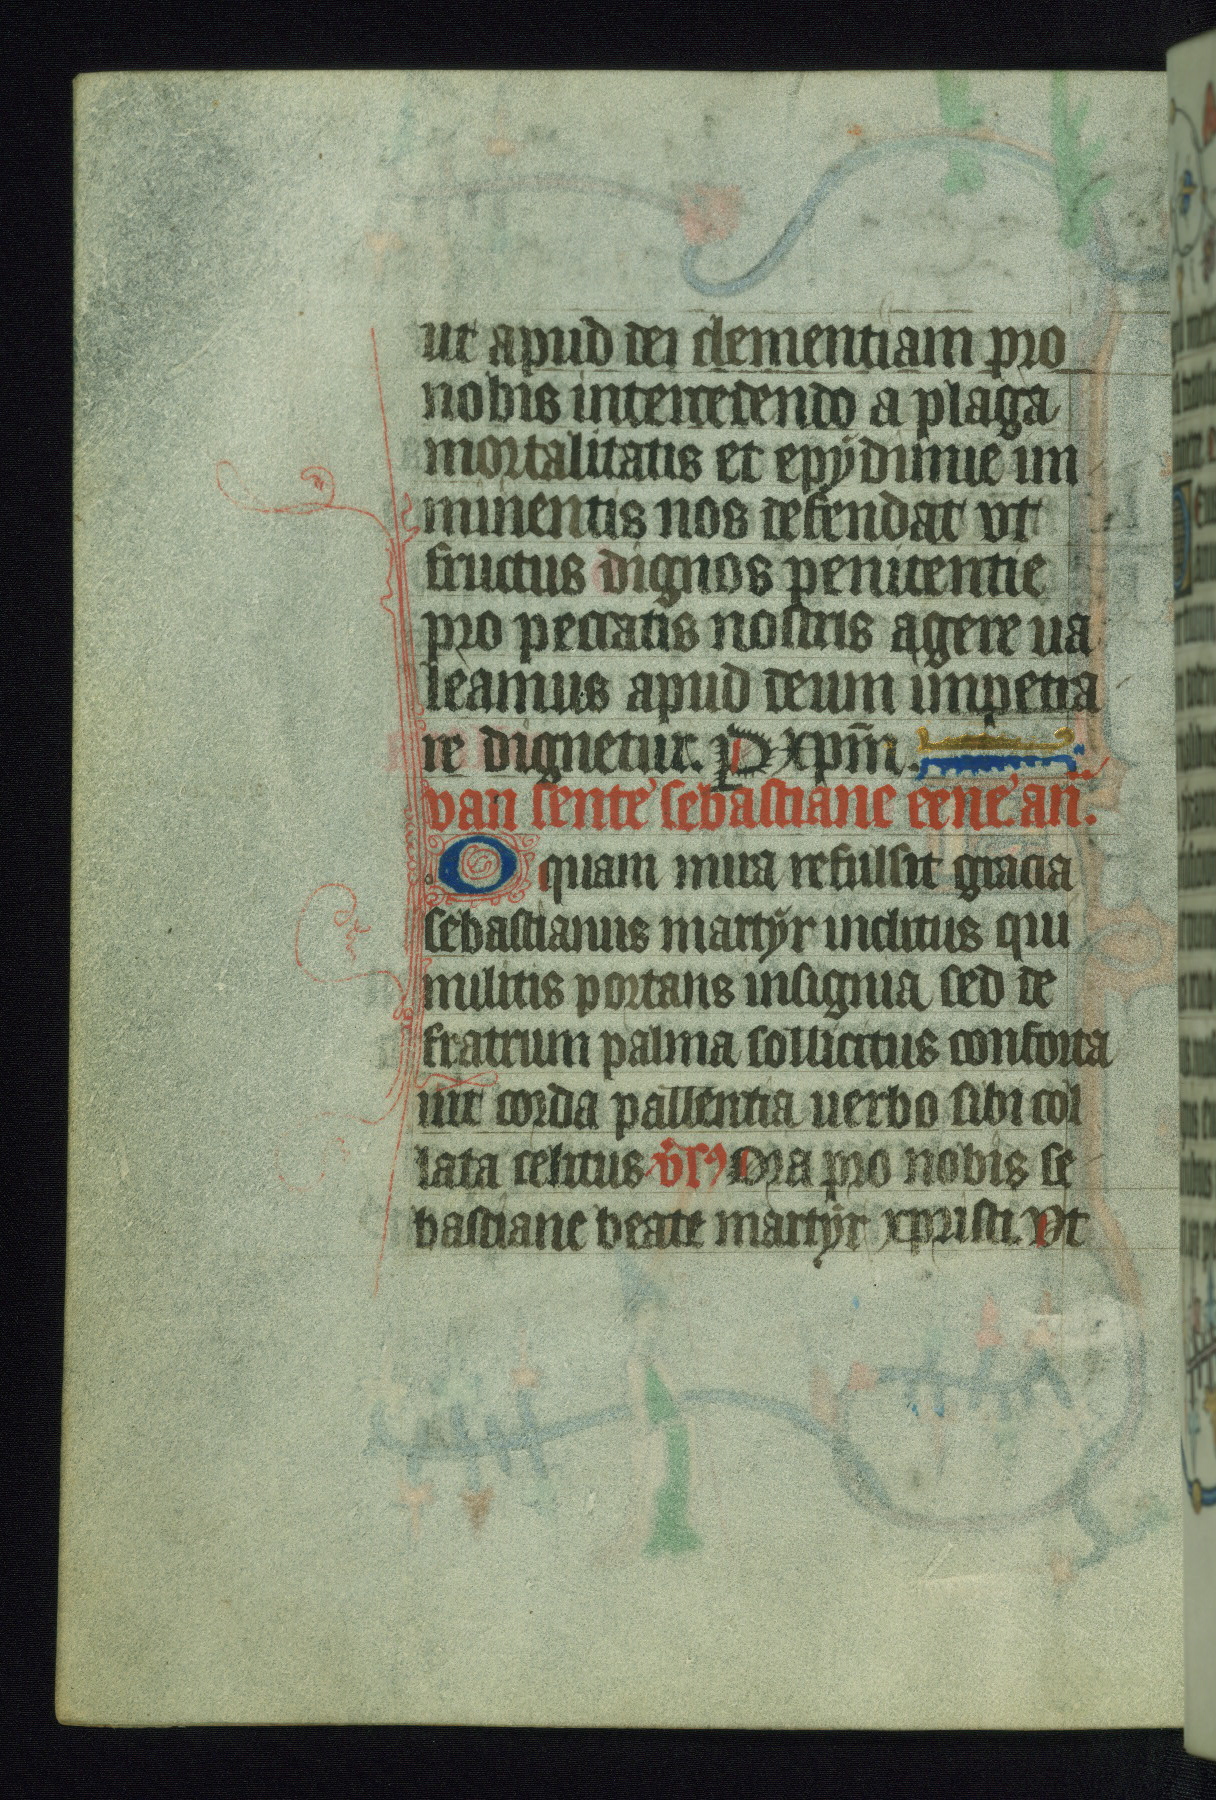 ut apud dei clementiam pro
nobis intercedendo a plaga
mortalitatis et epÿdimie im
minentis nos defendat vt
fructus dignos penitentie
pro peccatis nostris agere ua
leamus apud deum impetra
re dignetur. P xp̄m.
van sente sebastiane eene an̄.
O quam mira refulsit gracia
sebastianus martÿr inclitus qui
militis portans insignia sed de
fratrum palma sollicitus conforta
uit corda pallentia uerbo sibi col
lata celitus v̄s Ora pro nobis se
bastiane beate martÿr xpristi. Vt